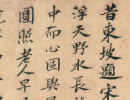 昔東坡題宋
浮天野水長
中而心固與
圓照老人早